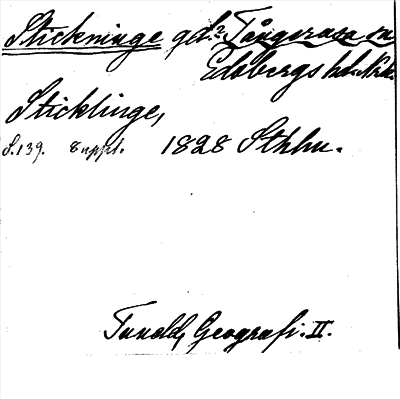 Stickninge gd? Tångeråsa sn
Edsbergs hd. Nrk.
Sticklinge,
S. 139. 8 uppl. 1828 Sthlm.
Tuneld, Geografi. II.